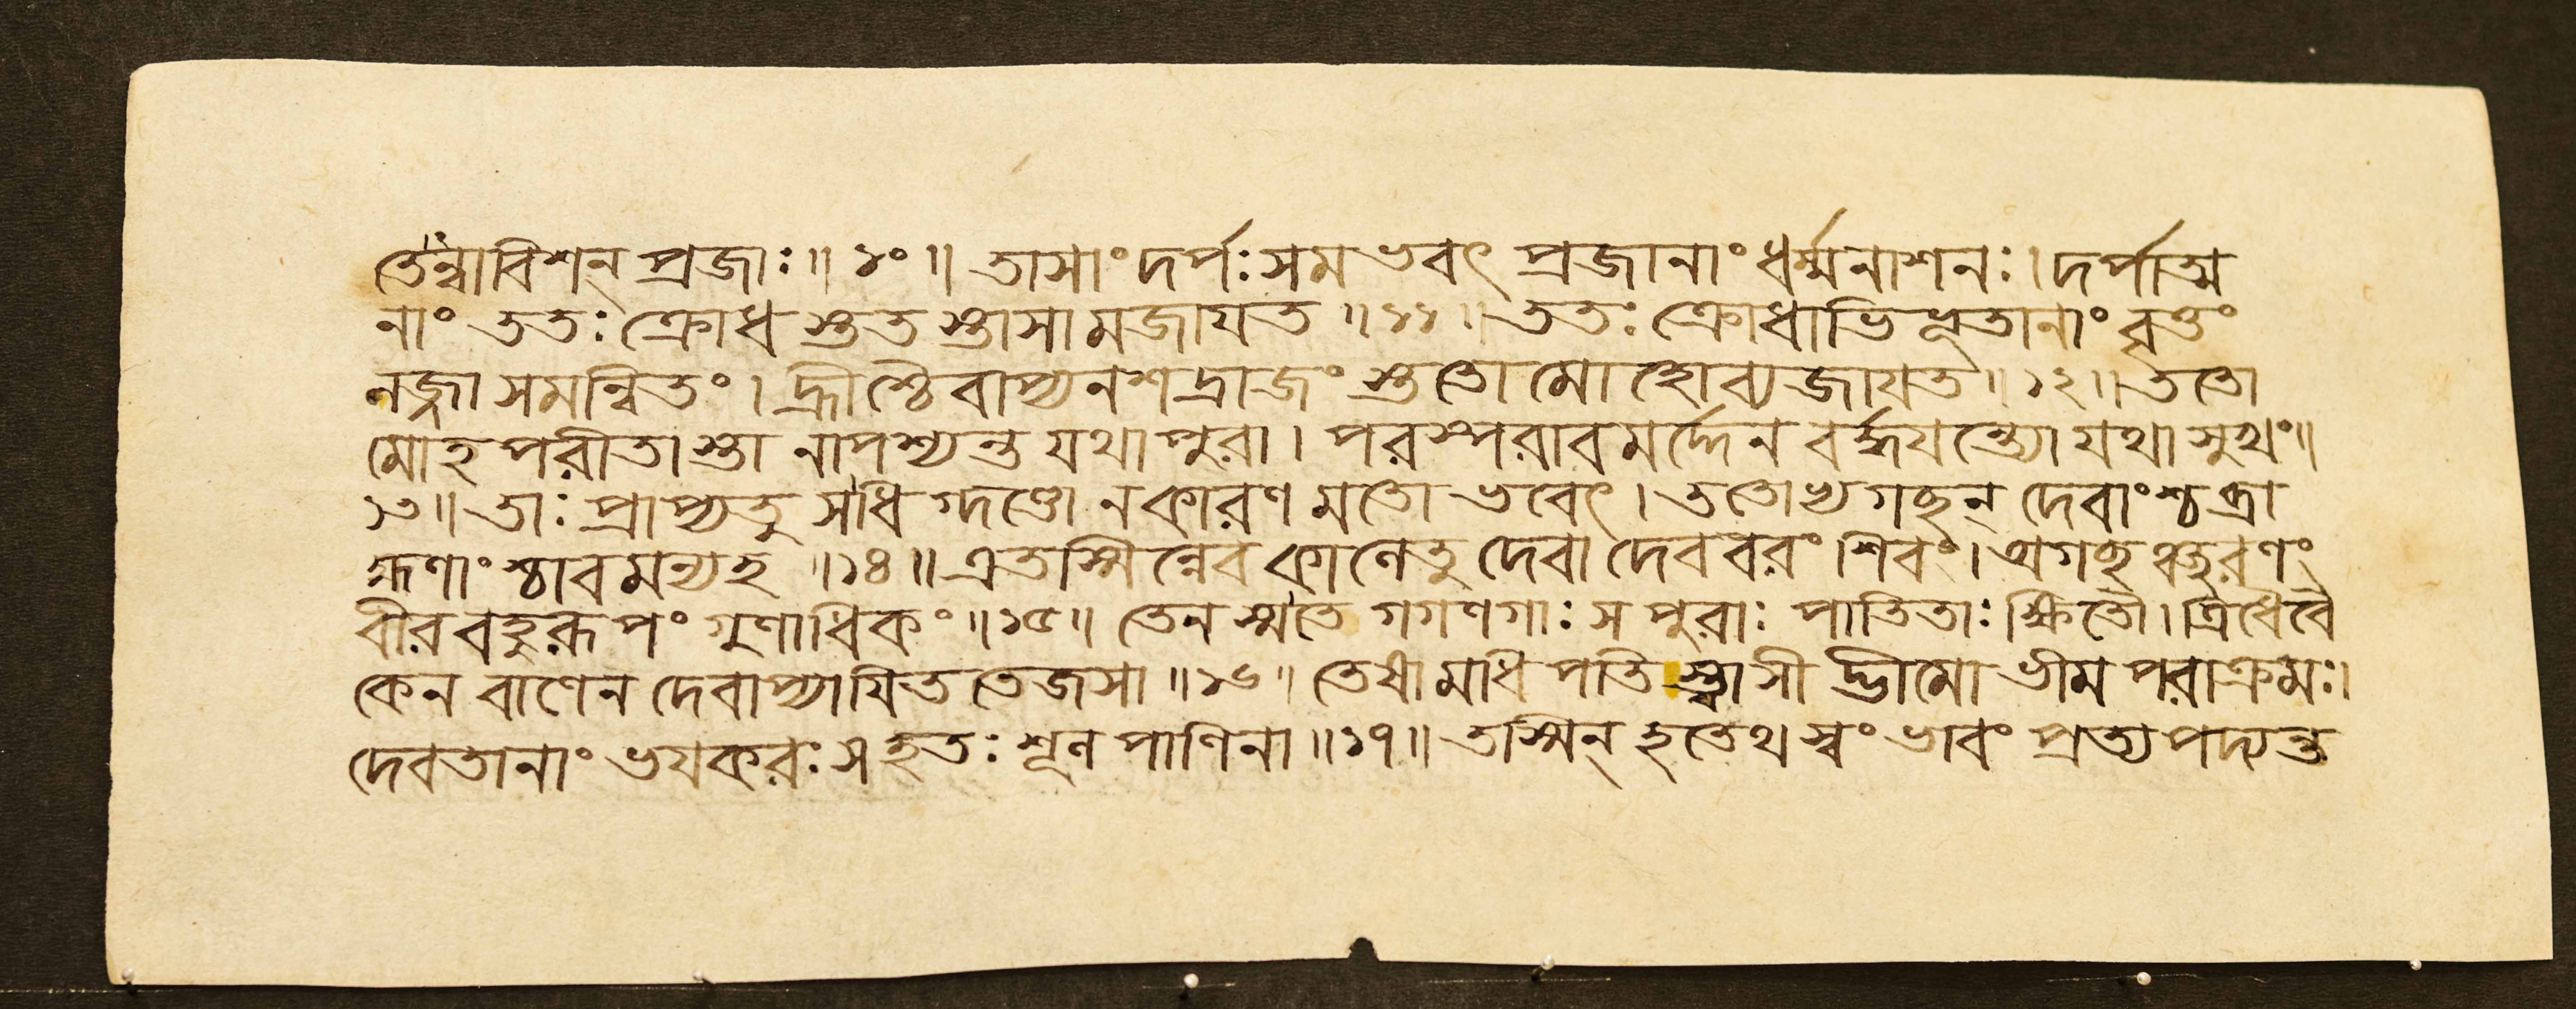 তেন্বাবিশন্ প্রজাঃ॥ ১০ ॥ তাসাং দর্পঃ সমভবৎ প্রজানাং ধর্ম্মনাশনঃ। দর্পাত্ম
নাং ততঃ ক্রোধ স্তুত স্তাসামজাযত ॥১১॥ ততঃ ক্রোধাভিভূতানাং বৃত্তং
নজ্জাসমন্বিতং। হ্রীশ্চৈবাপ্যনশদ্রাজং স্তুতো মোহোব্যজাযত॥১২॥ ততো
মোহপরীতাস্তা নাপশ্যন্ত যথাপুরা। পরস্পরাবমর্দ্দেন বর্দ্ধযন্ত্যো যথাসুখং॥
১৩॥ তাঃ প্রাপ্যতু সধিগ্দণ্ডো নকারণমতো ভবেৎ। ততোভ্যগছন্ দেবাংশ্চব্রা
হ্মণাং শ্চাবমন্যহ ॥১৪॥ এতস্মিন্নেব কানেতু দেবা দেববরং শিবং। অগছঞ্ছরণং
বীরবহুরূপং গুণাধিকং॥১৫॥ তেন স্মতে গগণগাঃ সপুরাঃ পাতিতাঃ ক্ষিতৌ। ত্রিধৈবৈ
কেন বাণেন দেবাপ্যাযিত তেজসা ॥১৬॥ তেষামধিপতিস্ত্বাসীদ্ভীমো ভীমপরাক্রমঃ।
দেবতানাং ভযকরঃ স হতঃ শূনপাণিনা॥১৭॥ তস্মিন্ হতেথ স্বং ভাবং প্রত্যপদ্যন্ত